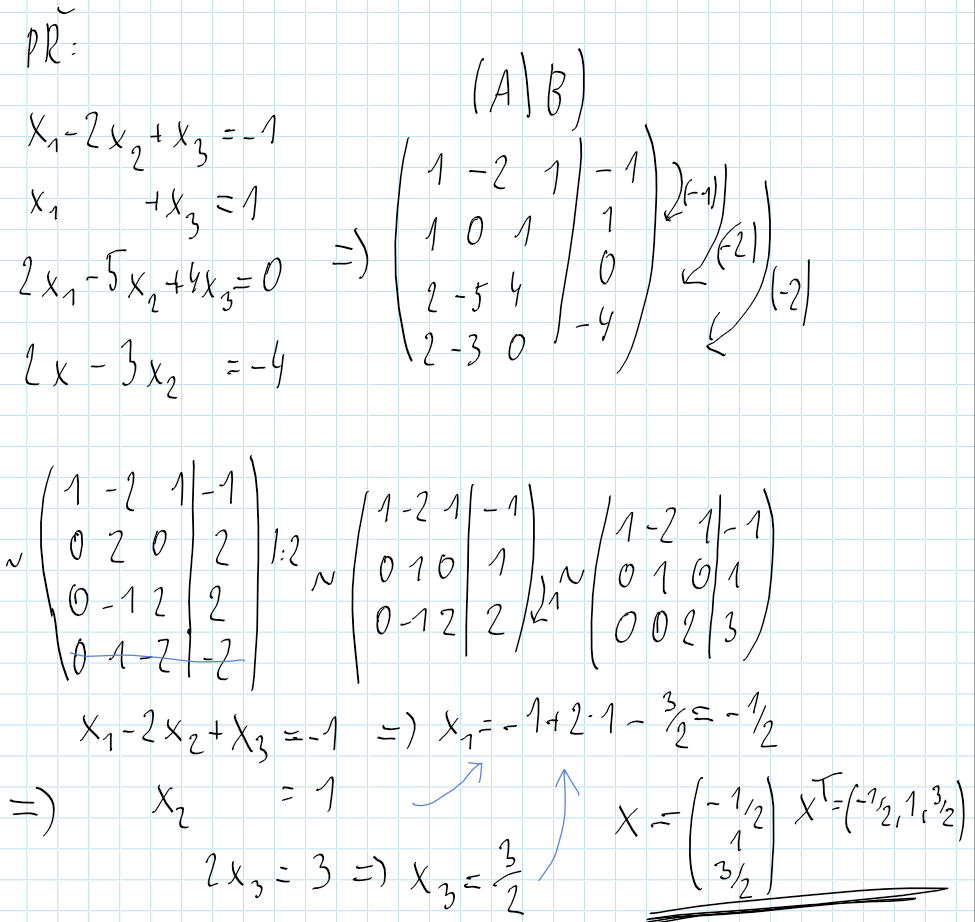 PŘ:
(A|B)
x₁ - 2x₂ + x₃ = -1
x₁ + x₃ = 1
2x₁ - 5x₂ + 4x₃ = 0
2x - 3x₂ = -4
=>
1 -2 1 | -1
1 0 1 | 1
2 -5 4 | 0
2 -3 0 | -4
(-1)
(-2)
(-2)
~
1 -2 1 | -1
0 2 0 | 2 |:2
0 -1 2 | 2
0 1 -2 | -2
~
1 -2 1 | -1
0 1 0 | 1
0 -1 2 | 2
1
~
1 -2 1 | -1
0 1 0 | 1
0 0 2 | 3
x₁ - 2x₂ + x₃ = -1 => x₁ = -1 + 2·1 - 3/2 = -1/2
=> x₂ = 1
2x₃ = 3 => x₃ = 3/2
x = (-1/2 1 3/2) xᵀ = (-1/2, 1, 3/2)